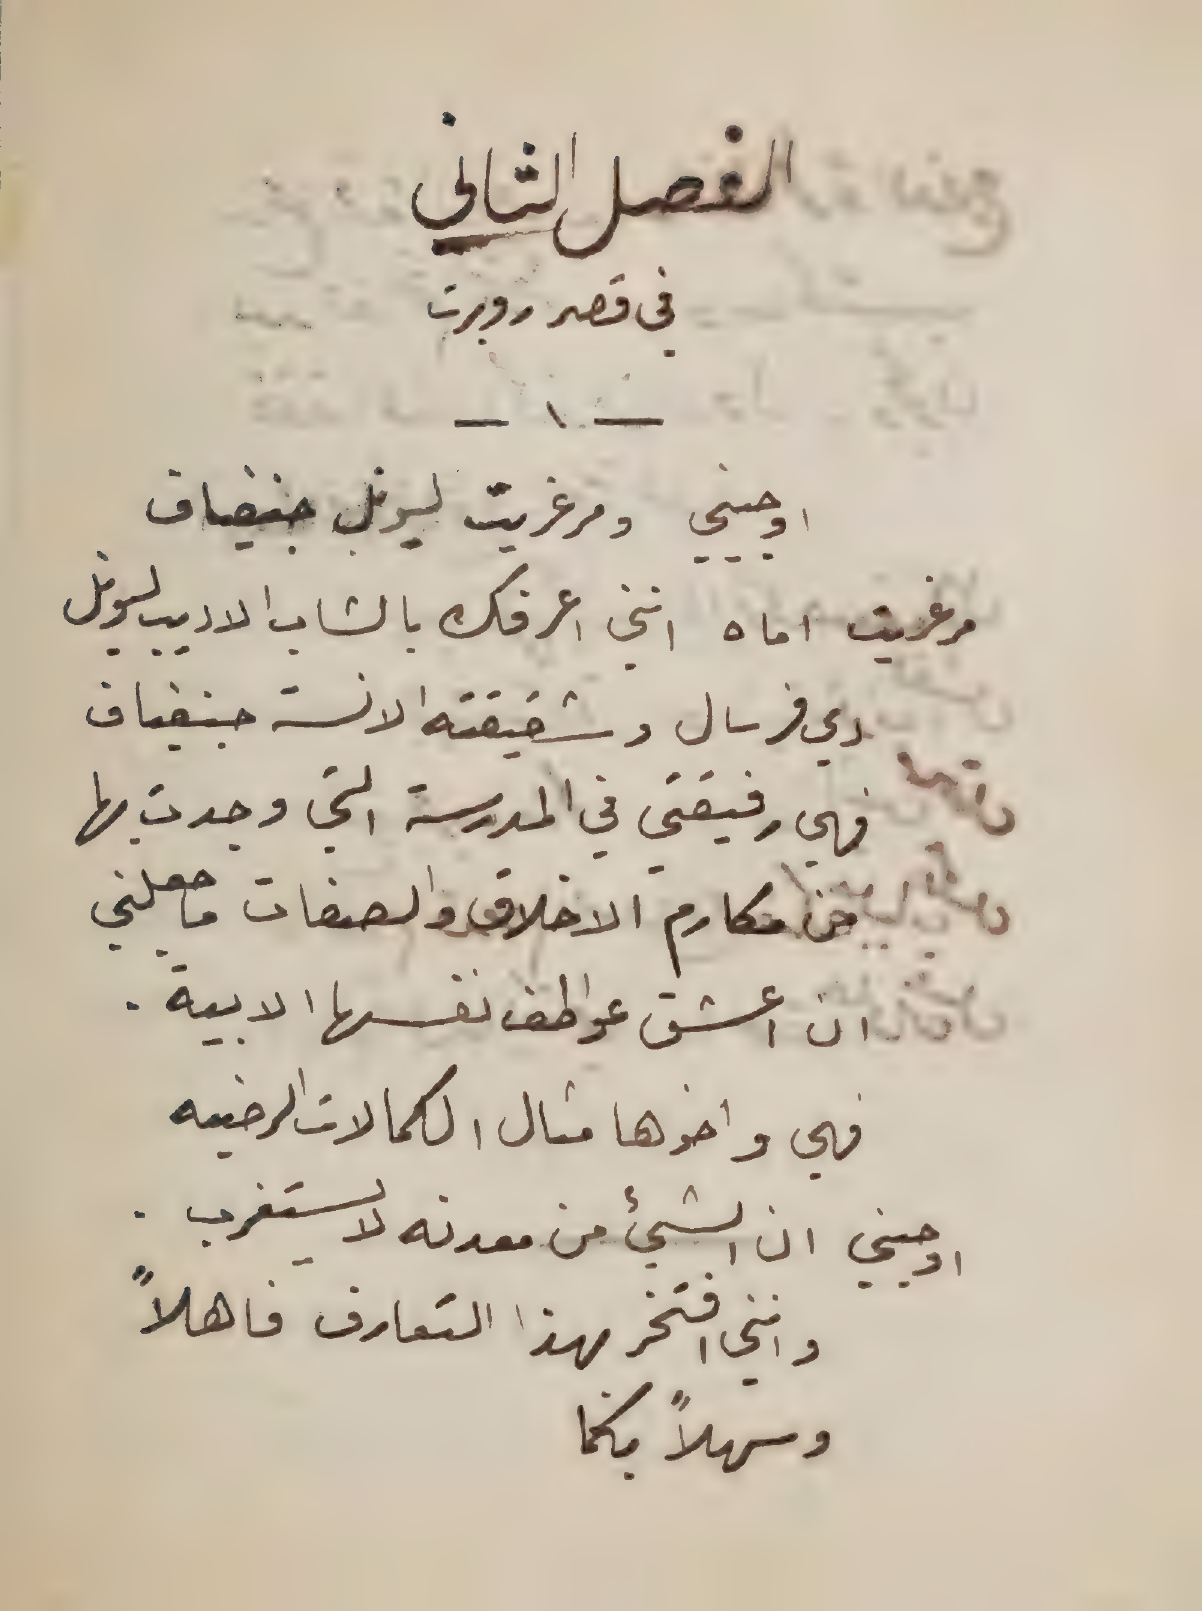 الفصل الثاني
في قصر روبرت
— ١ —
اوجيني ومرغريت ليونل جنفياف
مرغريت اماه انني اعرفك بالشاب الاديب ليونل
دي فرسال وشقيقته الانسة جنفياف
فهي رفيقتي في المدرسة التي وجدت بها
من مكارم الاخلاق والصفات ما جعلني
ان اعشق عواطف نفسها الابية .
فهي واخوها مثال الكمالات الرضيه
اوجيني ان الشيئ من معدنه لا يستغرب .
وانني افتخر بهذا التعارف فاهلاً
وسهلاً بكما